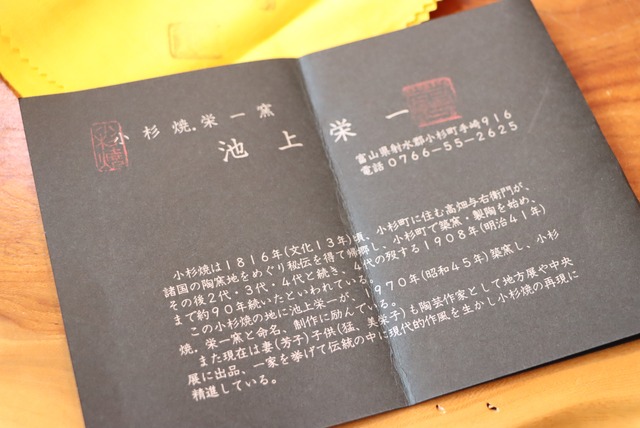 小杉焼.栄一窯
池上栄一
富山県射水郡小杉町手崎916
電話0766-55-2625
小杉焼は1816年(文化13年)頃、小杉町に住む高畑与右衛門が、
諸国の陶窯地をめぐり秘伝を得て帰郷し、小杉町で築窯・製陶を始め、
その後2代・3代・4代と続き、4代の歿する1908年(明治41年)
まで約90年続いたといわれている。
この小杉焼の地に池上栄一が、1970年(昭和45年)築窯し、小杉
焼。栄一窯と命名、制作に励んでいる。
また現在は妻(芳子)子供(猛、美栄子)も陶芸作家として地方展や中央
展に出品、一家を挙げて伝統の中に現代的作風を生かし小杉焼の再現に
精進している。